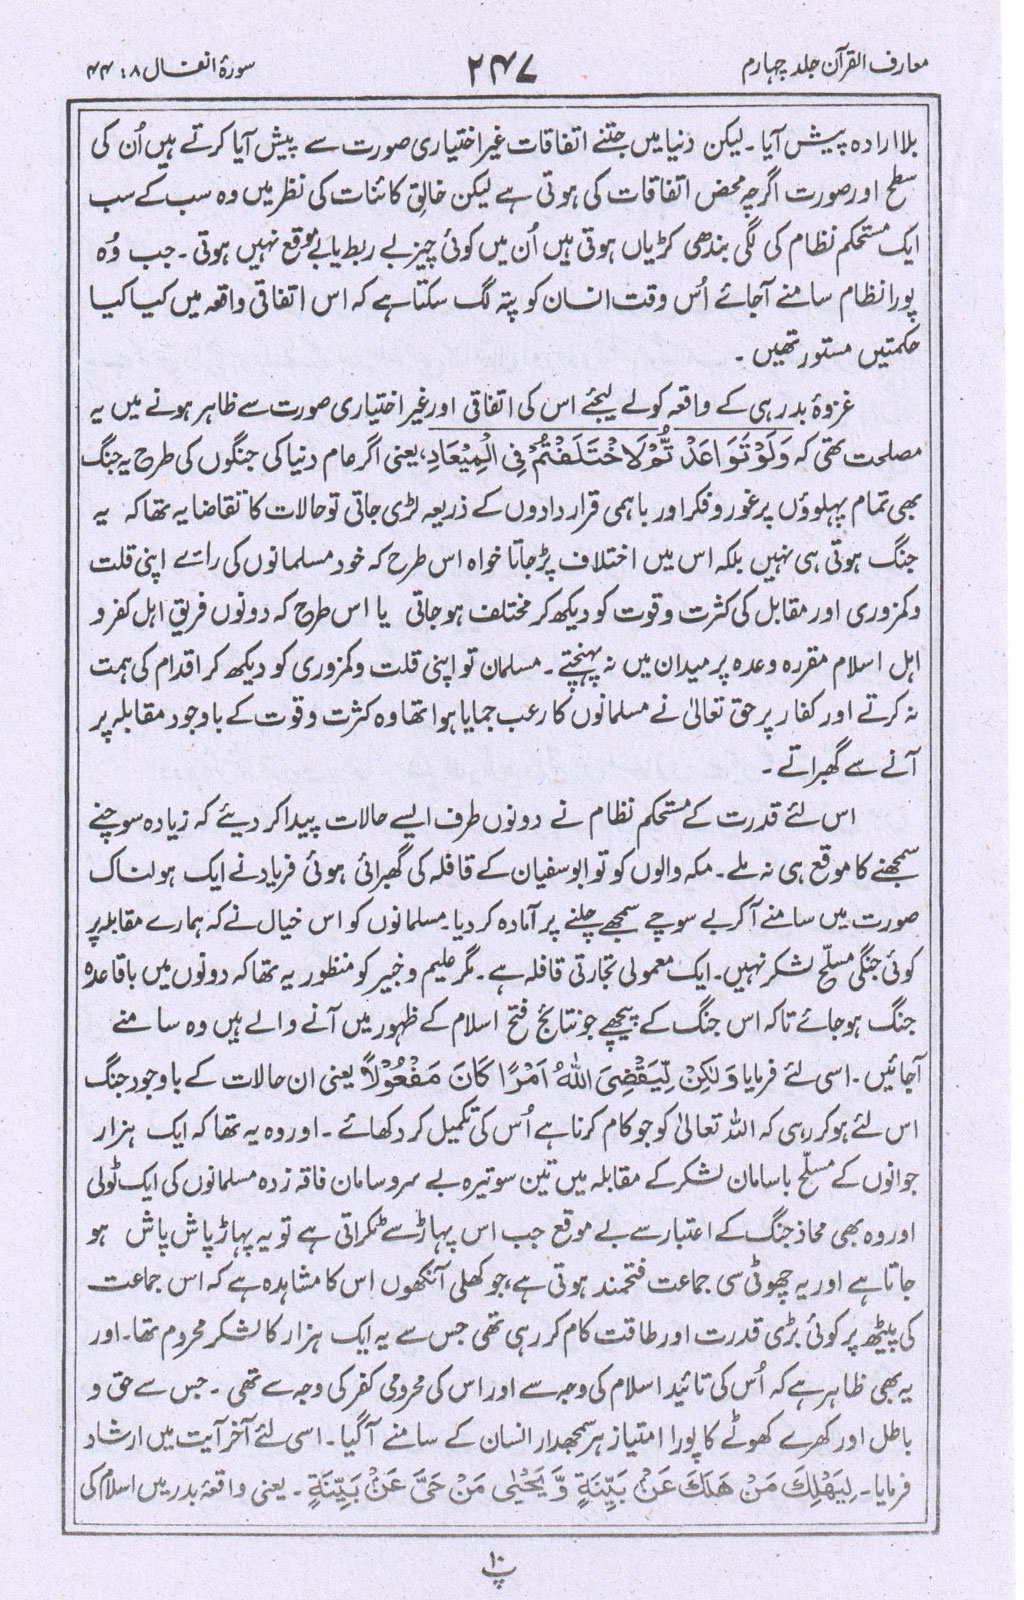 معارف القرآن جلد چہارم
۲۴۷
سورۂ انفال ۸ : ۴۴
بلا ارادہ پیش آیا۔ لیکن دنیا میں جتنے اتفاقات غیر اختیاری صورت سے پیش آیا کرتے ہیں اُن کی
سطح اور صورت اگرچہ محض اتفاقات کی ہوتی ہے لیکن خالقِ کائنات کی نظر میں وہ سب کے سب
ایک مستحکم نظام کی لگی بندھی کڑیاں ہوتی ہیں اُن میں کوئی چیز بے ربط یا بے موقع نہیں ہوتی۔ جب وُہ
پورا نظام سامنے آجائے اُس وقت انسان کو پتہ لگ سکتا ہے کہ اس اتفاقی واقعہ میں کیا کیا
حکمتیں مستور تھیں ۔
غزوۂ بدر ہی کے واقعہ کو لے لیجئے اس کی اتفاقی اور غیر اختیاری صورت سے ظاہر ہونے میں یہ
مصلحت تھی کہ وَلَوْ تَوَاعَدْتُّمْ لَاخْتَلَفْتُمْ فِی الْمِیْعَادِ، یعنی اگر عام دنیا کی جنگوں کی طرح یہ جنگ
بھی تمام پہلوؤں پر غور و فکر اور باہمی قرار دادوں کے ذریعہ لڑی جاتی تو حالات کا تقاضا یہ تھا کہ یہ
جنگ ہوتی ہی نہیں بلکہ اس میں اختلاف پڑجاتا خواہ اس طرح کہ خود مسلمانوں کی رائے اپنی قلت
و کمزوری اور مقابل کی کثرت و قوت کو دیکھ کر مختلف ہو جاتی یا اس طرح کہ دونوں فریق اہل کفر و
اہل اسلام مقررہ وعدہ پر میدان میں نہ پہنچتے ۔ مسلمان تو اپنی قلت و کمزوری کو دیکھ کر اقدام کی ہمت
نہ کرتے اور کفار پر حق تعالیٰ نے مسلمانوں کا رعب جمایا ہوا تھا وہ کثرت و قوت کے باوجود مقابلہ پر
آنے سے گھبراتے ۔
اس لئے قدرت کے مستحکم نظام نے دونوں طرف ایسے حالات پیدا کر دیئے کہ زیادہ سوچنے
سمجھنے کا موقع ہی نہ ملے ۔ مکہ والوں کو تو ابوسفیان کے قافلہ کی گھبرائی ہوئی فریاد نے ایک ہولناک
صورت میں سامنے آکر بے سوچے سمجھے چلنے پر آمادہ کر دیا۔ مسلمانوں کو اس خیال نے کہ ہمارے مقابلہ پر
کوئی جنگی مسلّح لشکر نہیں۔ ایک معمولی تجارتی قافلہ ہے ۔ مگر علیم و خبیر کو منظور یہ تھا کہ دونوں میں باقاعدہ
جنگ ہو جائے تاکہ اس جنگ کے پیچھے جو نتائج فتح اسلام کے ظہور میں آنے والے ہیں وہ سامنے
آجائیں ۔ اسی لئے فرمایا وَلٰكِنْ لِّيَقْضِىَ اللّٰهُ اَمْرًا كَانَ مَفْعُوْلًا یعنی ان حالات کے باوجود جنگ
اس لئے ہو کر رہی کہ اللہ تعالیٰ کو جو کام کرنا ہے اُس کی تکمیل کر دکھائے ۔ اور وہ یہ تھا کہ ایک ہزار
جوانوں کے مسلّح باسامان لشکر کے مقابلہ میں تین سو تیرہ بے سروسامان فاقہ زدہ مسلمانوں کی ایک ٹولی
اور وہ بھی محاذ جنگ کے اعتبار سے بے موقع جب اس پہاڑ سے ٹکراتی ہے تو یہ پہاڑ پاش پاش ہو
جاتا ہے اور یہ چھوٹی سی جماعت فتحمند ہوتی ہے، جو کھلی آنکھوں اس کا مشاہدہ ہے کہ اس جماعت
کی پیٹھ پر کوئی بڑی قدرت اور طاقت کام کر رہی تھی جس سے یہ ایک ہزار کا لشکر محروم تھا۔ اور
یہ بھی ظاہر ہے کہ اُس کی تائید اسلام کی وجہ سے اور اس کی محرومی کفر کی وجہ سے تھی ۔ جس سے حق و
باطل اور کھرے کھوٹے کا پورا امتیاز ہر سمجھدار انسان کے سامنے آگیا ۔ اسی لئے آخر آیت میں ارشاد
فرمایا۔ لِيَهْلِكَ مَنْ هَلَكَ عَنْ بَيِّنَةٍ وَّ يَحْيٰى مَنْ حَىَّ عَنْ بَيِّنَةٍ ۔ یعنی واقعۂ بدر میں اسلام کی
پ ۱۰